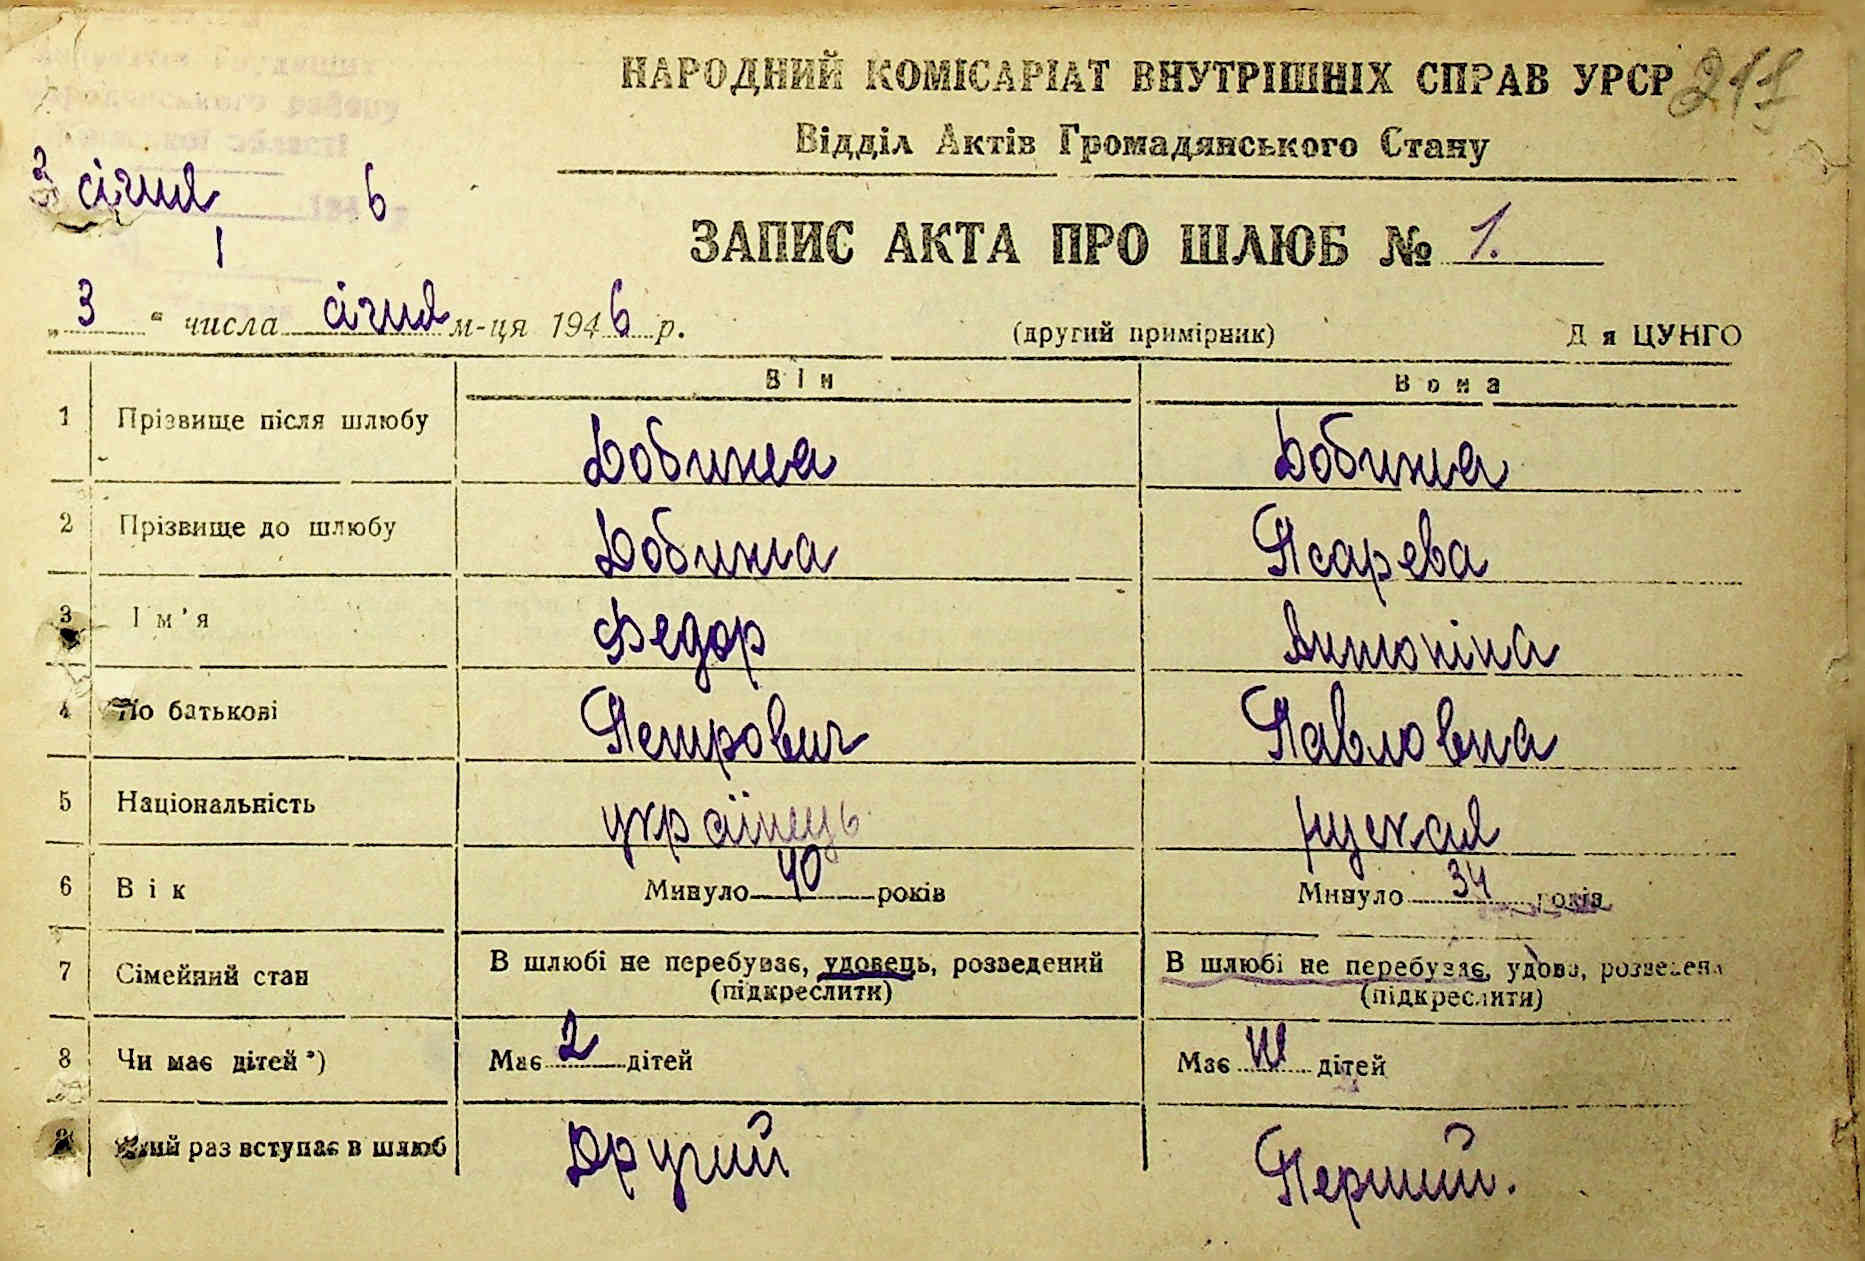 НАРОДНИЙ КОМІСАРІАТ ВНУТРІШНІХ СПРАВ УРСР
Відділ Актів Громадянського Стану
району
області
3 січня 194 6
1
ЗАПИС АКТА ПРО ШЛЮБ № 1.
„ 3 “ числа січня м-ця 194 6 р. (другий примірник) Д я ЦУНГО
Він Вона
1 Прізвище після шлюбу Добинжа Добинжа
2 Прізвище до шлюбу Добинжа Псарева
3 Ім'я Федор Антоніна
4 По батькові Петрович Павловна
5 Національність українець руская
6 Вік Минуло 40 років Минуло 34 років
7 Сімейний стан В шлюбі не перебуває, удовець, розведений В шлюбі не перебуває, удова, розведена
(підкреслити) (підкреслити)
8 Чи має дітей *) Має 2 дітей Має дітей
раз вступає в шлюб Другий Перший.